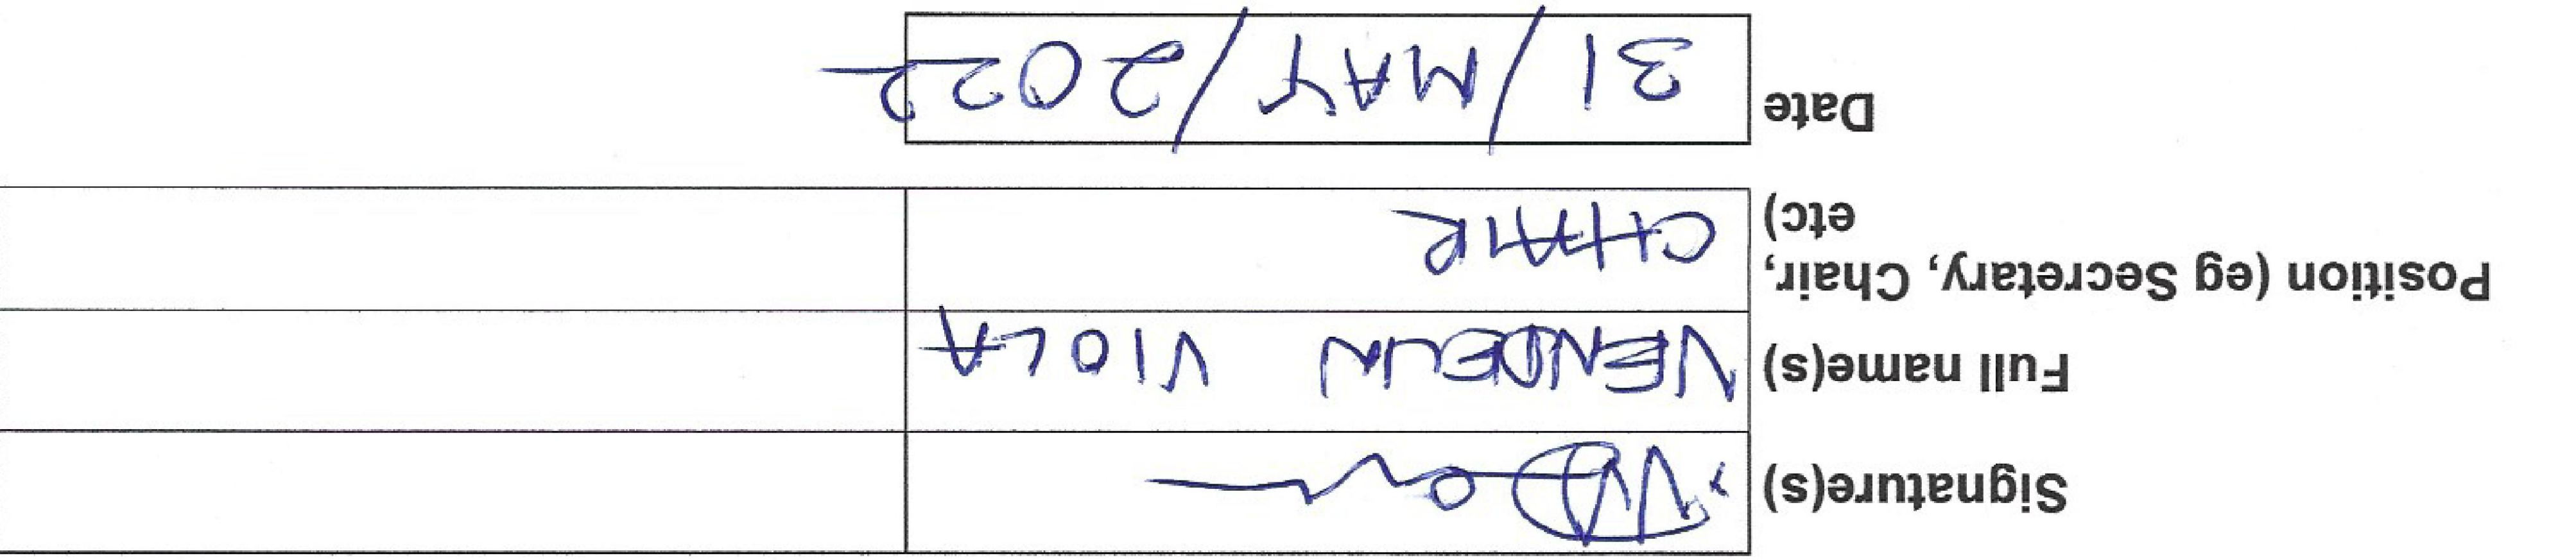 Signature(s)
Full name(s) VENDELIN VIOLA
Position (eg Secretary, Chair,
etc) CHAIR
Date 31/MAY/2022